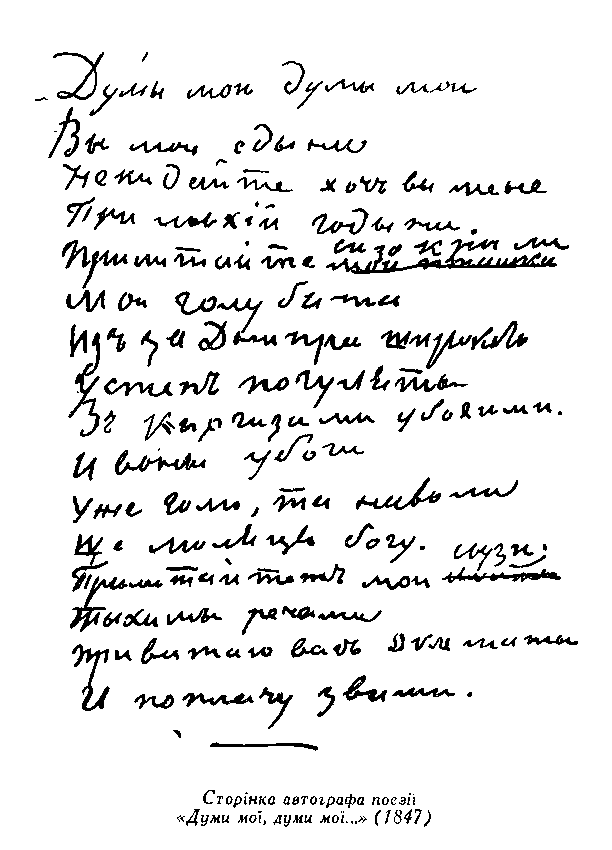 Думы мои думы мои
Вы мои едыни
Некидайте хочъ вы мене
При лыхій годыни.
Прилитайте сизокрыли
Мои голубята
Изъ за Днипра широкого
У степъ погуляты
Зъ Киргизами убогими.
И вони убоги
Уже голи, та наволи
Ще моляця богу.
Прилитайтежъ мои
Тыхими речами
Привитаю васъ
И поплачу звами.
Сторінка автографа поезії
«Думи мої, думи мої...» (1847)